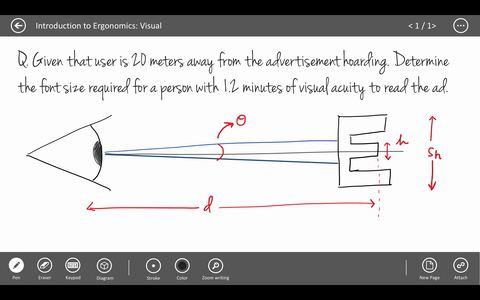 Introduction to Ergonomics: Visual
< 1 / 1>
Q. Given that user is 20 meters away from the advertisement hoarding. Determine
the font size required for a person with 1.2 minutes of visual acuity to read the ad.
θ
h
5h
d
Pen
Eraser
Keypad
Diagram
Stroke
Color
Zoom writing
New Page
Attach